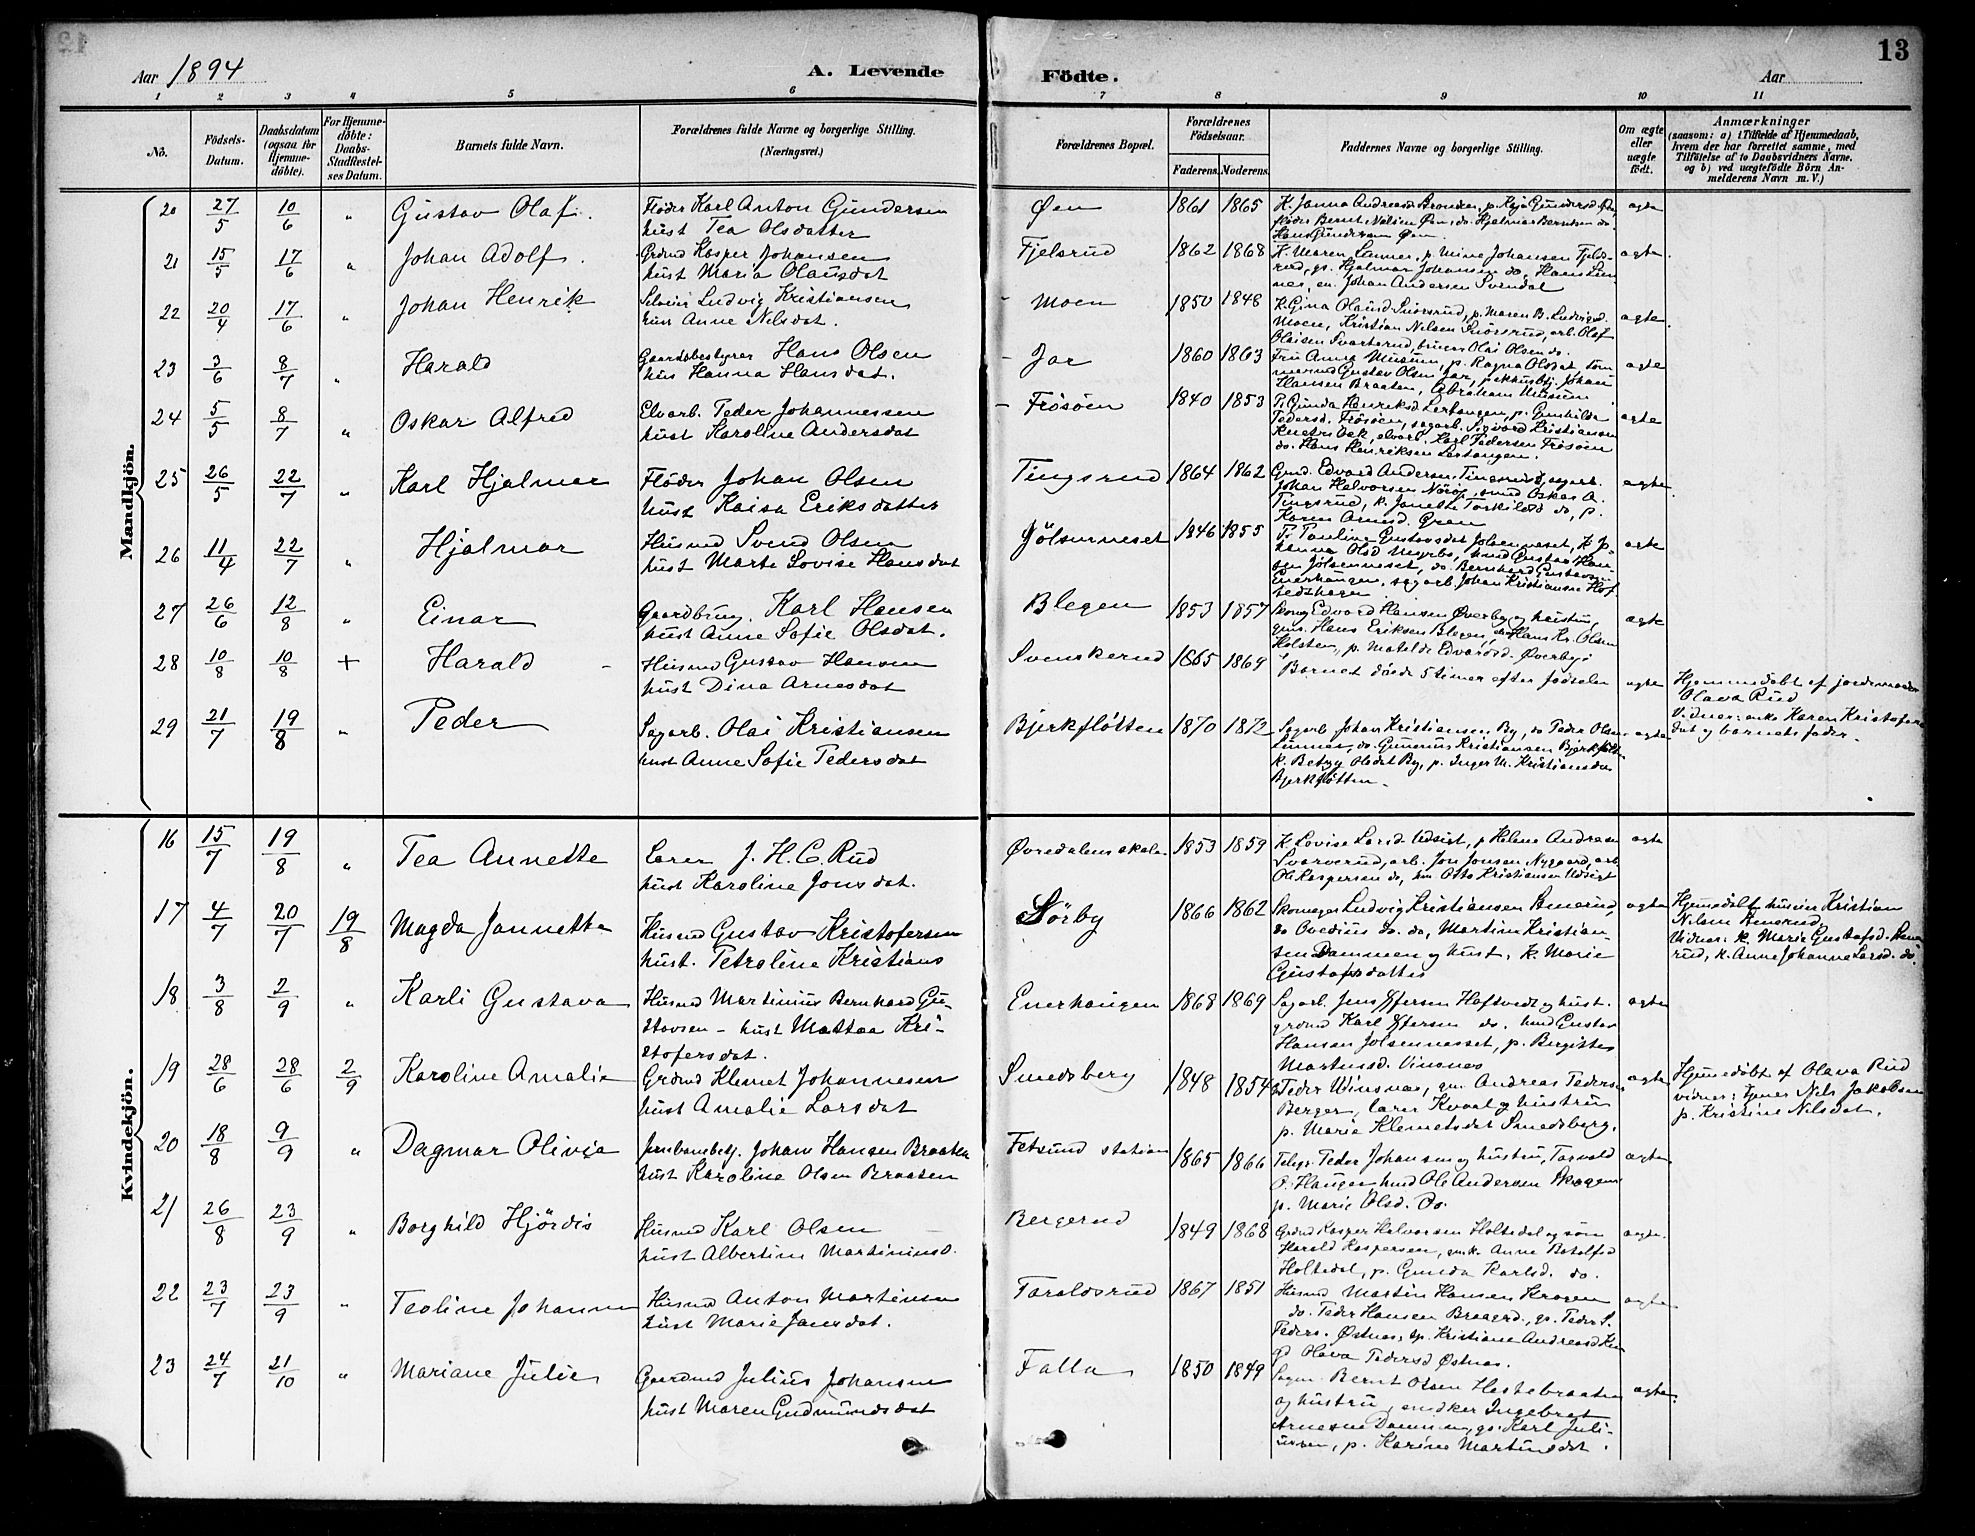 13
Aar 1894
A. Levende
Födte.
Aar
1 2 3 4 5 6 7 8 9 10 11
No.
Födsels-
Datum.
Daabsdatum
(ogsaa for
Hjemme-
döbte).
For Hjemme-
döbte:
Daabs-
Stadfæstel-
ses Datum.
Barnets fulde Navn.
Forældrenes fulde Navne og borgerlige Stilling.
(Næringsvei.)
Forældrenes Bopæl.
Forældrenes
Födselsaar.
Faderens. Moderens.
Faddernes Navne og borgerlige Stilling.
Om ægte
eller
uægte
födt.
Anmærkninger
(saasom: a) i Tilfælde af Hjemmedaab,
hvem der har forrettet samme, med
Tilföielse af to Daabsvidners Navne.
og b) ved uægtefödte Börn An-
melderens Navn m. V.)
Mandkjön.
20 27/5 10/6 " Gustav Olaf. Fløder Karl Anton Gundersen
hust Tea Olsdatter
Øen 1861 1865
Hans Gundersen Øen
ægte
21 15/5 17/6 " Johan Adolf. Grdmd Kasper Johansen
hust Maria Olausdat
Fjelsrud 1862 1868 K. Maren Linner, p. Mine Johansen Fjelds-
rud, gs. Hjalmar Johansen do, Hans Lin-
nes, en. Johan Andersen Svendal
ægte
22 20/4 17/6 " Johan Henrik Ludvig Kristiansen
hus Anne Nilsdat.
Moen 1850 1848 K. Gina Olausd Snorsrud, p. Maren B. Ludvigsd.
Moen, Kristian Nilsen Snorsrud, arb. Olaf
Olaisen Svarterud, Olai Olsen do.
ægte
23 3/6 8/7 " Harald Gaardsbestyrer Hans Olsen
hus Hanna Hansdat.
Jar 1860 1863 Fru Anna Musum, p. Ragna Olsdat Tom
Gustav Olsen Jar, Johan
Hansen Braaten, Abraham Musum
ægte
24 5/5 8/7 " Oskar Alfred Elvarb. Peder Johannessen
hust Karoline Andersdat
Frösöen 1840 1853 P. Gunda Henriksd Lertangen, p. Gunhilda
Pedersd. Frösöen, sagarb. Sigvard Kristiansen
elvarb. Karl Pedersen Frösöen
do. Hans Henriksen Lertangen.
ægte
25 26/5 22/7 " Karl Hjalmar Fløder Johan Olsen
hust Kaisa Eriksdatter
Tingsrud 1864 1862 Grmd. Edvard Andersen Tingsrud, sagarb.
Johan Halvorsen Oskar A.
Tingsrud, k. Janette Torkildsd do, p.
Karen Arnesd. Gren
ægte
26 11/4 22/7 " Hjalmar Husmd Svend Olsen
hust Marte Lovise Hansdat
Jölsenneset 1846 1855 P. Pauline Gustavsdat Jölsenneset, k. J.
hanna Olsd Myrbö, hmd Gustav Han-
sen Jölsenneset, do. Bernhard Gustavsen
Enerhaugen, sagarb. Johan Kristiansen Hof
tvedthagen
ægte
27 26/6 12/8 " Einar Gaardbrug. Karl Hansen
hust Anne Sofie Olsdat.
Blegen 1853 1857 Skomg Edvard Hansen Øverby og hustru,
gm. Hans Eriksen Blegen, Hans Kr. Olsen
Holsten, p. Matilde Edvardsd. Øverby
ægte
28 10/8 10/8 + Harald Husmd Gustav Hansen
hust Dina Arnesdat
Svenskerud 1865 1869 Barnet døde 5 timer efter fødselen
ægte
Hjemmedøbt af jordemoder
Olava Rud
Vidner: enke Karen Kristofers
dat og barnets fader.
29 21/7 19/8 " Peder Sagarb. Olai Kristiansen
hust Anne Sofie Pedersdat
Bjerkfløtten 1870 1872 Sagarb Johan Kristiansen By, do Peder Olsen
Linner, do. Gunerius Kristiansen Bjerkfløt
k. Betzy Olsdat By, p. Inger M. Kristiansdat
Bjerkfløtten
ægte
Kvindekjön.
16 15/7 19/8 " Tea Annette Lærer J. H. C. Rud
hust Karoline Jonsdat.
Øvredalens skole 1853 1859 K Lovise Larsd Udsigt, p Helene Andresen
Svarverud, arb. Jon Jonsen Nygaard, arb
Ole Kaspersen do, hm Otto Kristiansen Udsigt
ægte
17 4/7 20/7 19/8 Magda Jannette Husmd Gustav Kristofersen
hust. Petroline Kristians
Nørby 1866 1862 Skomager Ludvig Kristiansen Amerud,
do Ovedius do. do, Martin Kristian-
sen Dammen og hust, k. Marie
Gustafsdatter
ægte
Hjemmedøbt af husm Kristian
Nilsen Amerud,
Vidner: k. Marie Gustafsd. Ame
rud, k. Anne Johanne Larsd. do.
18 3/8 2/9 " Karli Gustava Husmd Martinius Bernhard Gu-
stavsen - hust Mattea Kri-
stofersdat.
Enerhaugen 1868 1869 Sagarb. Jens Iffersen Hoftvedt og hust.
grdmd Karl Iffersen do. hmd Gustav
Hansen Jolsennesset, p. Bergitte
Martinsd. Vinsnes
ægte
19 28/6 28/6 2/9 Karoline Amalie Grdmd Klemet Johannesen
hust Amalie Larsdat
Smedsberg 1848 1854 Peder Winsnæs, gm. Andreas Pederse
Berger, lærer Kvael og hustru
p. Marie Klemetsdat Smedsberg.
ægte
Hjemmedøbt af Olava Rud
vidner: tjener Nils Jakobsen
p. Kristine Nilsdat.
20 18/8 9/9 " Dagmar Olivia Jernbanebetj. Johan Hansen Braaten
hust Karoline Olsen Braaten
Fetsund station 1865 1866 Telegr. Peder Johansen og hustru, Torvald
O. Haugen hmd Ole Andersen Skogen
p. Marie Olsd. Do.
ægte
21 26/8 23/9 " Borghild Hjördis Husmd Karl Olsen
hust Albertine Martiniusd.
Bergerud 1849 1868 Grdmd Kasper Halvorsen Holtedal og søn
Harald Kaspersen, gmk. Anne Botolfsd
Holtedal, p. Gunda Karlsd. do.
ægte.
22 23/7 23/9 " Teoline Johanne Husmd Anton Martinsen
hust Marie Jansdat.
Taraldsrud 1867 1851 Husmd Martin Hansen Krogen
do. Peder Hansen Braagerd, gs. Peder S.
Peders. Østnes, tp. Kristiane Andreasd
p Olava Pedersd Østnes.
ægte
23 24/7 21/10 " Mariane Julie Gaardmd Julius Johansen
hust Maren Gudmundsdat
Falla 1850 1849 Bernt Olsen Hestebraaten
og hustru, Ingebret
Arnesen Dammen, gs. Karl Juli-
ussen, p. Karine Martinsdat.
ægte